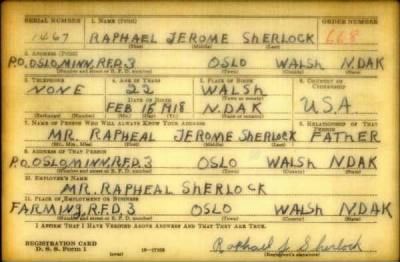 SERIAL NUMBER 1. NAME (Print) ORDER NUMBER
1467 RAPHAEL JEROME SHERLOCK 668
(First) (Middle) (Last)
2. ADDRESS (Print)
P.O. OSLO MINN, R.F.D. 3 OSLO WALSH N.DAK
(Number and street or R. F. D. number) (Town) (County) (State)
3. TELEPHONE 4. AGE IN YEARS 5. PLACE OF BIRTH 6. COUNTRY OF CITIZENSHIP
NONE 22 WALSH
DATE OF BIRTH (Town or county)
FEB 16 1918 N.DAK U.S.A.
(Exchange) (Number) (Mo.) (Day) (Yr.) (State or country)
7. NAME OF PERSON WHO WILL ALWAYS KNOW YOUR ADDRESS 8. RELATIONSHIP OF THAT PERSON
MR. RAPHEAL JEROME SHERLOCK FATHER
(Mr., Mrs., Miss) (First) (Middle) (Last)
9. ADDRESS OF THAT PERSON
P.O. OSLO MINN, R.F.D. 3 OSLO WALSH N.DAK
(Number and street or R. F. D. number) (Town) (County) (State)
10. EMPLOYER'S NAME
MR. RAPHEAL SHERLOCK
11. PLACE OF EMPLOYMENT OR BUSINESS
FARMING, R.F.D. 3 OSLO WALSH N.DAK
(Number and street or R. F. D. number) (Town) (County) (State)
I AFFIRM THAT I HAVE VERIFIED ABOVE ANSWERS AND THAT THEY ARE TRUE.
REGISTRATION CARD
D. S. S. Form 1 Raphael J. Sherlock